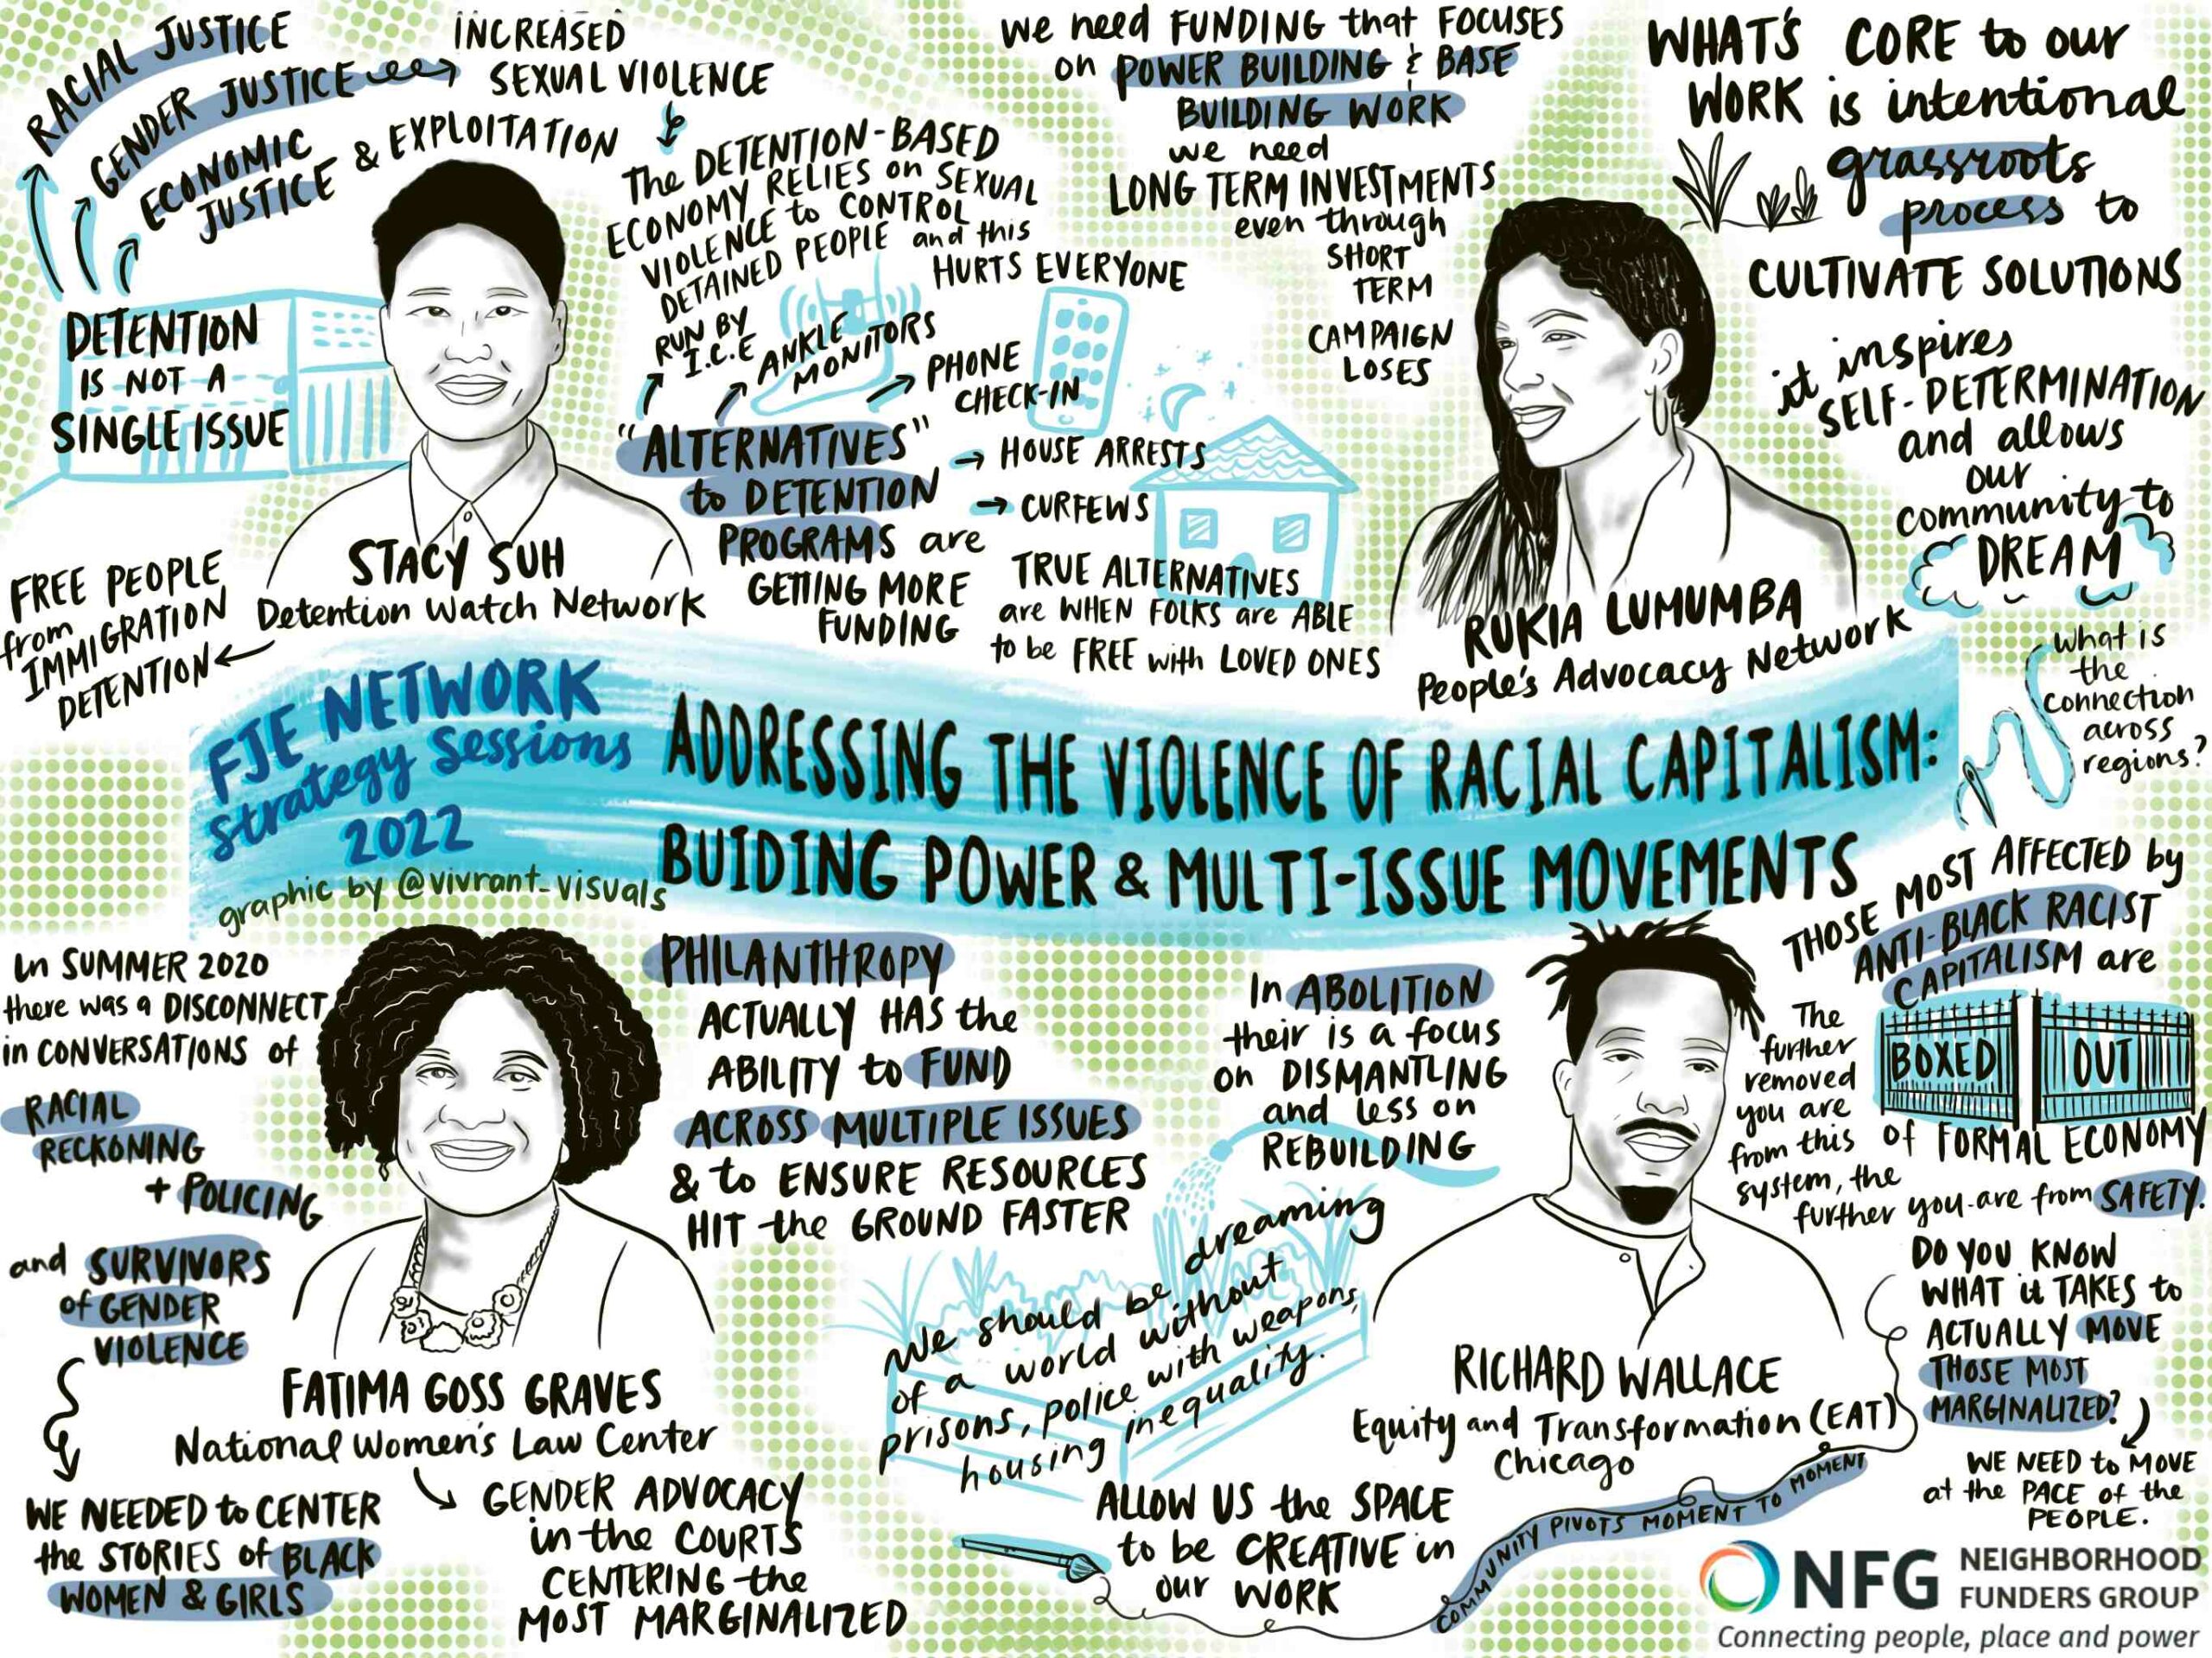 RACIAL JUSTICE
GENDER JUSTICE
INCREASED
SEXUAL VIOLENCE
ECONOMIC
JUSTICE & EXPLOITATION
DETENTION
IS NOT A
SINGLE ISSUE
The DETENTION-BASED
ECONOMY RELIES on SEXUAL
VIOLENCE to CONTROL
DETAINED PEOPLE and this
HURTS EVERYONE
RUN BY
I.C.E
ANKLE
MONITORS
PHONE
CHECK-IN
"ALTERNATIVES"
to DETENTION
PROGRAMS are
GETTING MORE
FUNDING
HOUSE ARRESTS
CURFEWS
TRUE ALTERNATIVES
are WHEN FOLKS are ABLE
to be FREE with LOVED ONES
STACY SUH
Detention Watch Network
FREE PEOPLE
from
IMMIGRATION
DETENTION
we need FUNDING that FOCUSES
on POWER BUILDING & BASE
BUILDING WORK
we need
LONG TERM INVESTMENTS
even through
SHORT
TERM
CAMPAIGN
LOSES
WHAT'S CORE to our
WORK is intentional
grassroots
process to
CULTIVATE SOLUTIONS
it inspires
SELF-DETERMINATION
and allows
our
community to
DREAM
RUKIA LUMUMBA
People's Advocacy Network
what is
the
connection
across
regions?
FJE NETWORK
strategy sessions
2022
graphic by @vivrant_visuals
ADDRESSING THE VIOLENCE OF RACIAL CAPITALISM:
BUIDING POWER & MULTI-ISSUE MOVEMENTS
In SUMMER 2020
there was a DISCONNECT
in CONVERSATIONS of
RACIAL
RECKONING
+ POLICING
and SURVIVORS
of GENDER
VIOLENCE
WE NEEDED to CENTER
the STORIES of BLACK
WOMEN & GIRLS
FATIMA GOSS GRAVES
National Women's Law Center
GENDER ADVOCACY
in the COURTS
CENTERING the
MOST MARGINALIZED
PHILANTHROPY
ACTUALLY HAS the
ABILITY to FUND
ACROSS MULTIPLE ISSUES
& to ENSURE RESOURCES
HIT the GROUND FASTER
In ABOLITION
their is a focus
on DISMANTLING
and less on
REBUILDING
we should be dreaming
of a world without
prisons, police with weapons,
housing inequality.
ALLOW US the SPACE
to be CREATIVE in
our WORK
RICHARD WALLACE
Equity and Transformation (EAT)
Chicago
COMMUNITY PIVOTS MOMENT TO MOMENT
THOSE MOST AFFECTED by
ANTI-BLACK RACIST
CAPITALISM are
BOXED OUT
of FORMAL ECONOMY
The
further
removed
you are
from this
system, the
further you are from SAFETY.
DO YOU KNOW
WHAT it TAKES to
ACTUALLY MOVE
THOSE MOST
MARGINALIZED?
WE NEED to MOVE
at the PACE of the
PEOPLE.
NFG NEIGHBORHOOD
FUNDERS GROUP
Connecting people, place and power